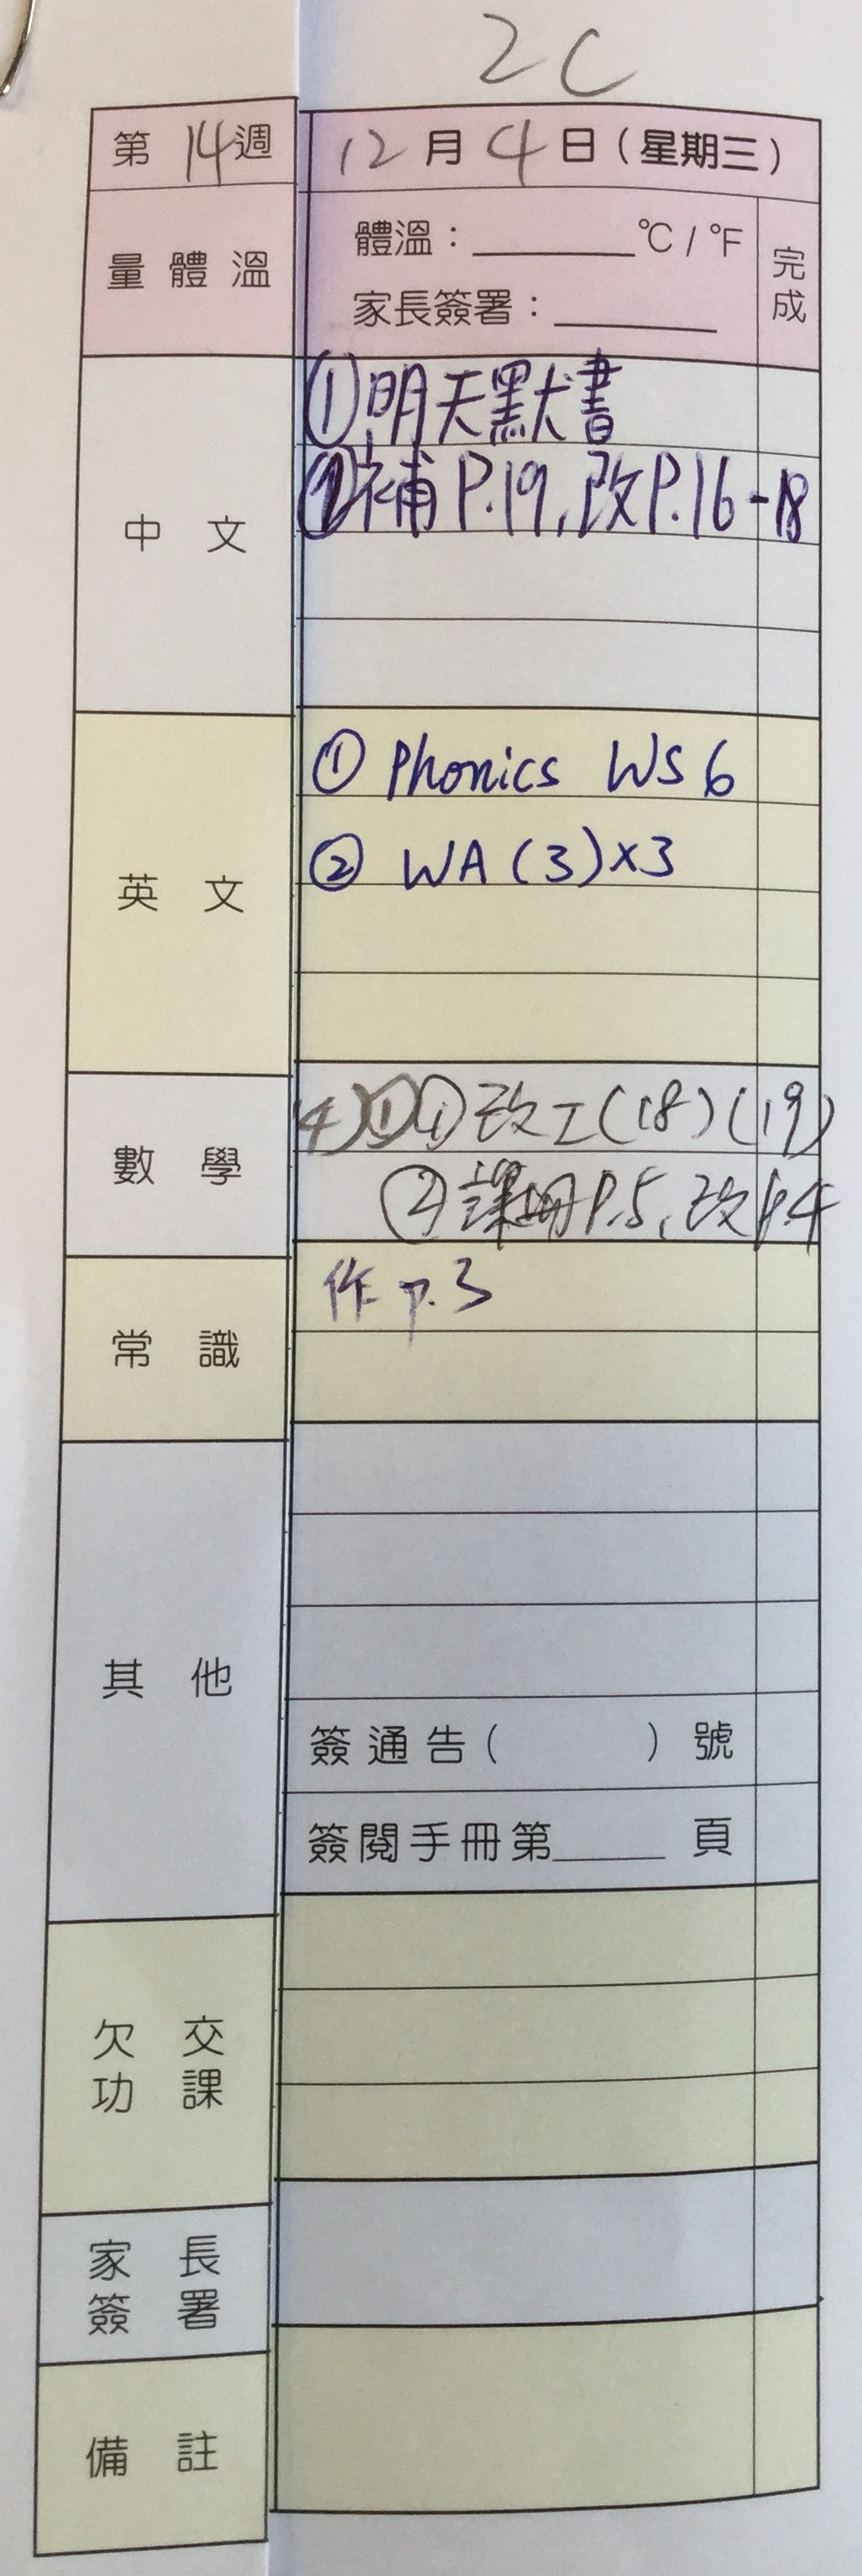 2C
第 14 週 12 月 4 日 (星期三)
量體溫
體溫：______ °C / °F
家長簽署：______
完成
中文
① 明天默書
補 P.19, 改 P.16-18
英文
① Phonics WS 6
② WA (3) x3
數學
4) ① ① 改工 (18) (19)
② 課堂 P.5, 改 P.4
常識
作 p.3
其他
簽通告 ( ) 號
簽閱手冊第______ 頁
欠交
功課
家長
簽署
備註